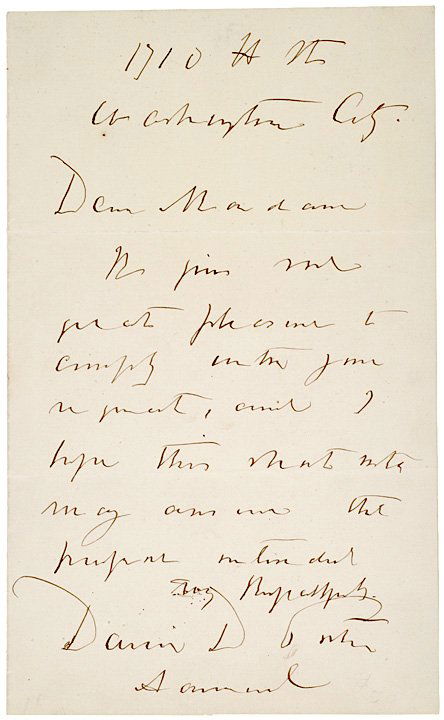 1710 H St
Washington City.
Dear Madam
It gives me
great pleasure to
comply with your
request, and I
hope this short note
may answer the
purpose intended
Very Respectfully
David D Porter
Admiral